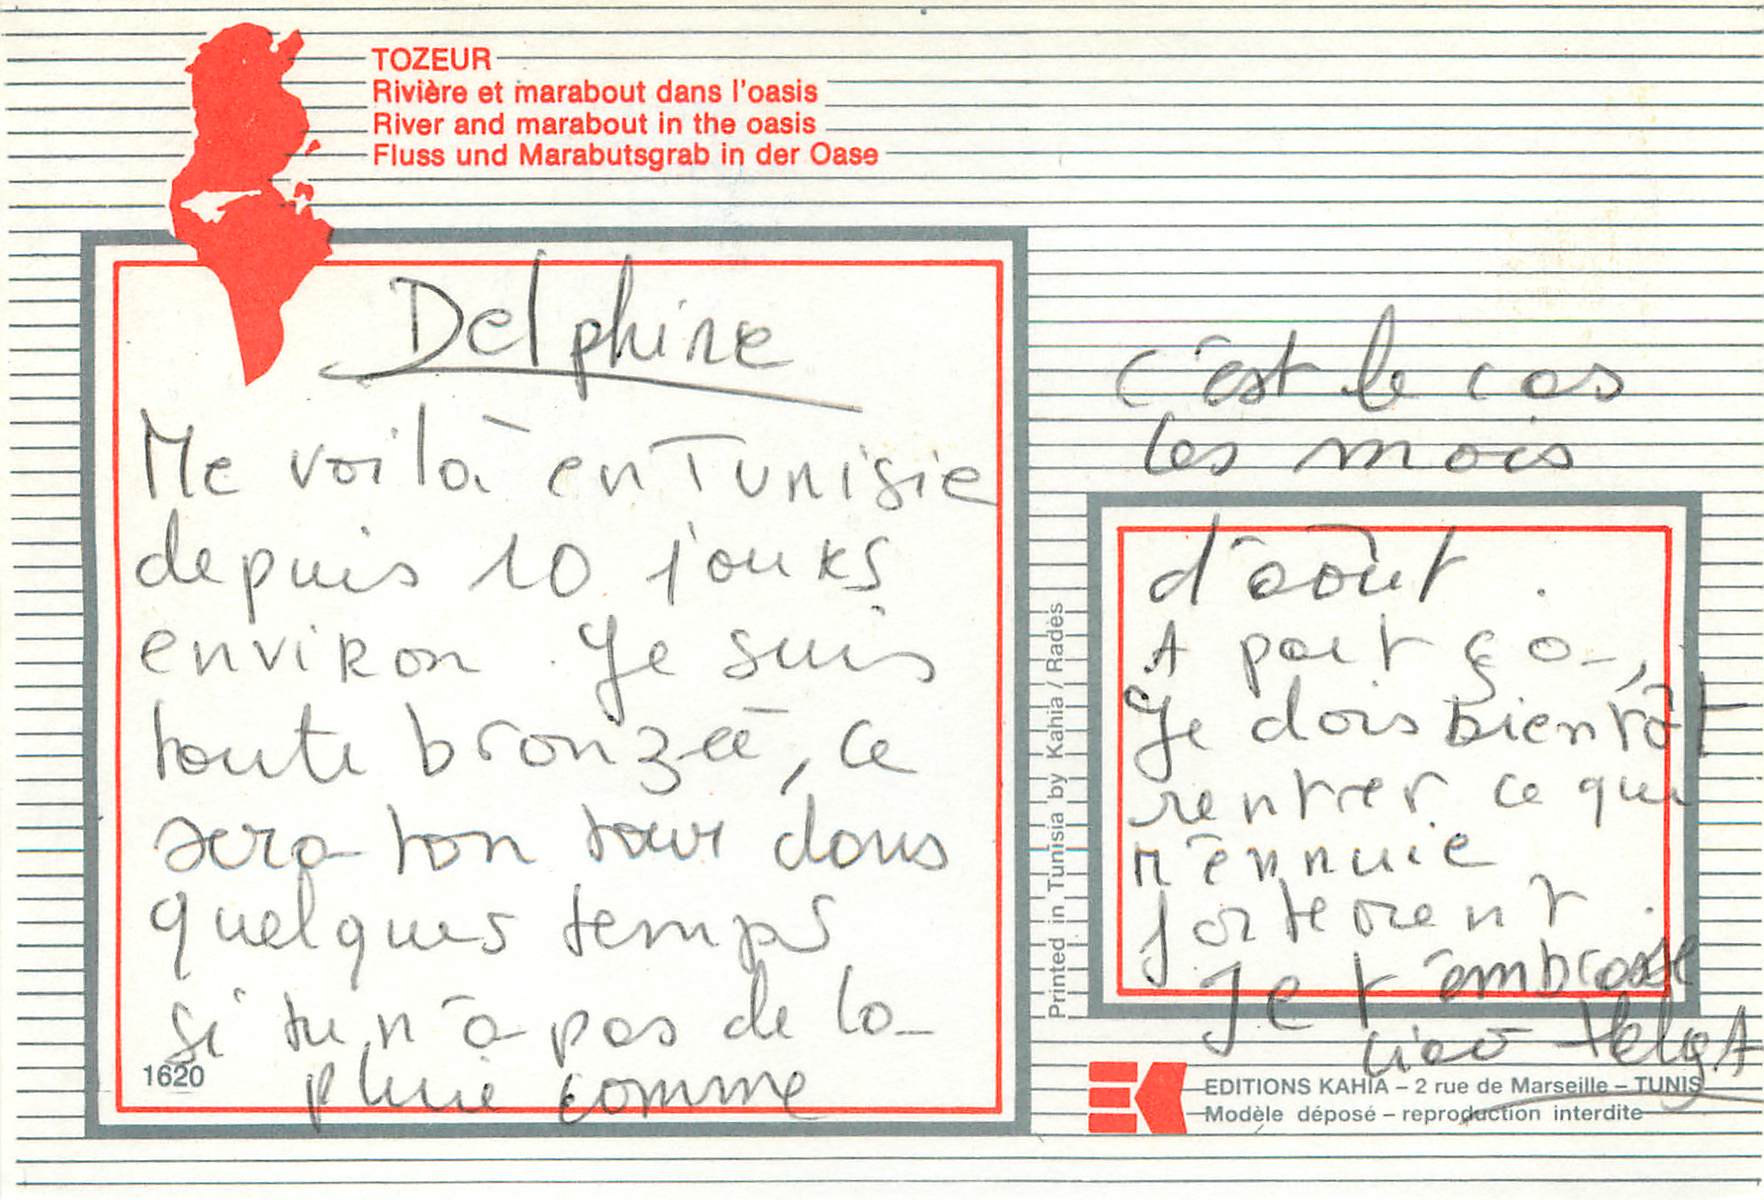 TOZEUR
Rivière et marabout dans l'oasis
River and marabout in the oasis
Fluss und Marabutsgrab in der Oase
Delphine
Me voilà en Tunisie
depuis 10 jours
environ. Je suis
toute bronzée, ce
sera ton tour dans
quelques temps
si tu n'a pas de la
pluie comme
1620
c'est le cas
les mois
d'août.
A part ça,
Je dois bientôt
rentrer ce qui
m'ennuie
fortement.
Je t'embrasse
ciao Helga
Printed in Tunisia by Kahia / Radès
EDITIONS KAHIA – 2 rue de Marseille – TUNIS
Modèle déposé – reproduction interdite